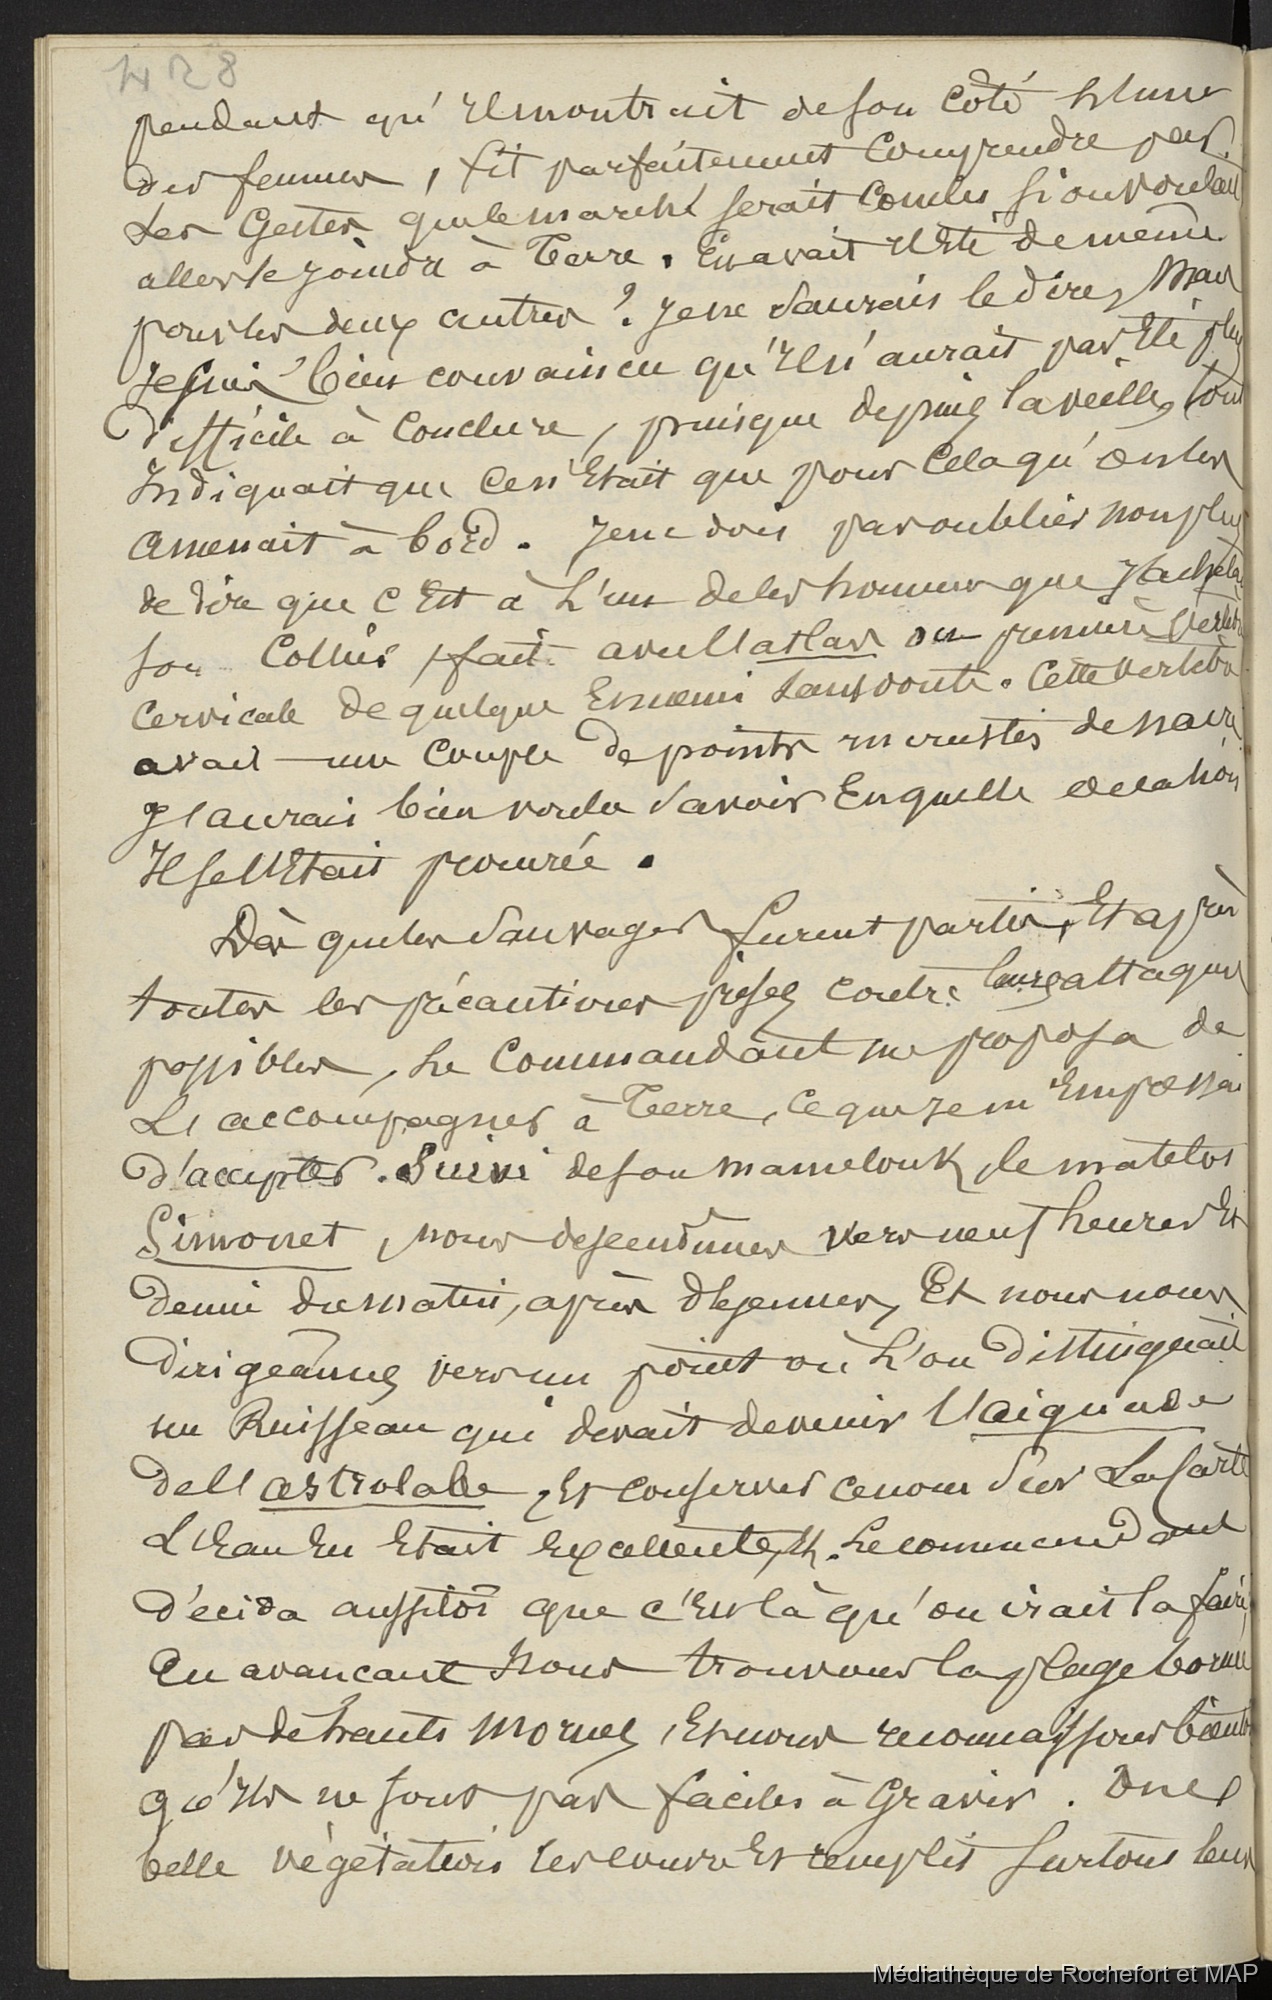 428
pendant qu'il montrait de son côté l'une
des femmes, fit parfaitement comprendre par
les Gestes que le marché serait conclu si on voulait
aller le joindre à Terre. En avait il été de même
pour les deux autres ? je ne saurais le dire, mais
je suis bien convaincu qu'il n'aurait pas été plus
difficile à conclure, puisque depuis la veille, tout
Indiquait que ce n'était que pour cela qu'on les
amenait à bord. je ne dois pas oublier non plus
de dire que c'est à l'un de les hommes que j'achetai
son collier, fait avec l'atlas ou première vertèbre
cervicale de quelque Ennemi sans doute. Cette vertèbre
avait une couple de points incrustés de nacre
j'aurais bien voulu savoir En quelle occasion
Il se l'était procurée.
Dès que les Sauvages furent partis, Et après
toutes les précautions prises contre leurs attaques
possibles, le Commandant me proposa de
l'accompagner à Terre, ce que je m'Empressai
d'accepter. Suivi de son mamelouk, le matelot
Simonet, nous descendîmes vers neuf heures Et
demie du matin, après déjeuner, Et nous nous
dirigeâmes vers un point où l'on distinguait
un Ruisseau qui devait devenir l'aiguade
de l'astrolabe, Et conserver ce nom sur la carte
L'Eau En Etait Excellente, Le commandant
décida aussitôt que c'est là qu'on irait la faire,
En avançant Nous trouvons la plage bornée
par de hauts mornes, Et nous reconnaissons bientôt
qu'Ils ne sont pas faciles à Gravir. Une
belle végétation les couvre Et remplit surtout leur
Médiathèque de Rochefort et MAP